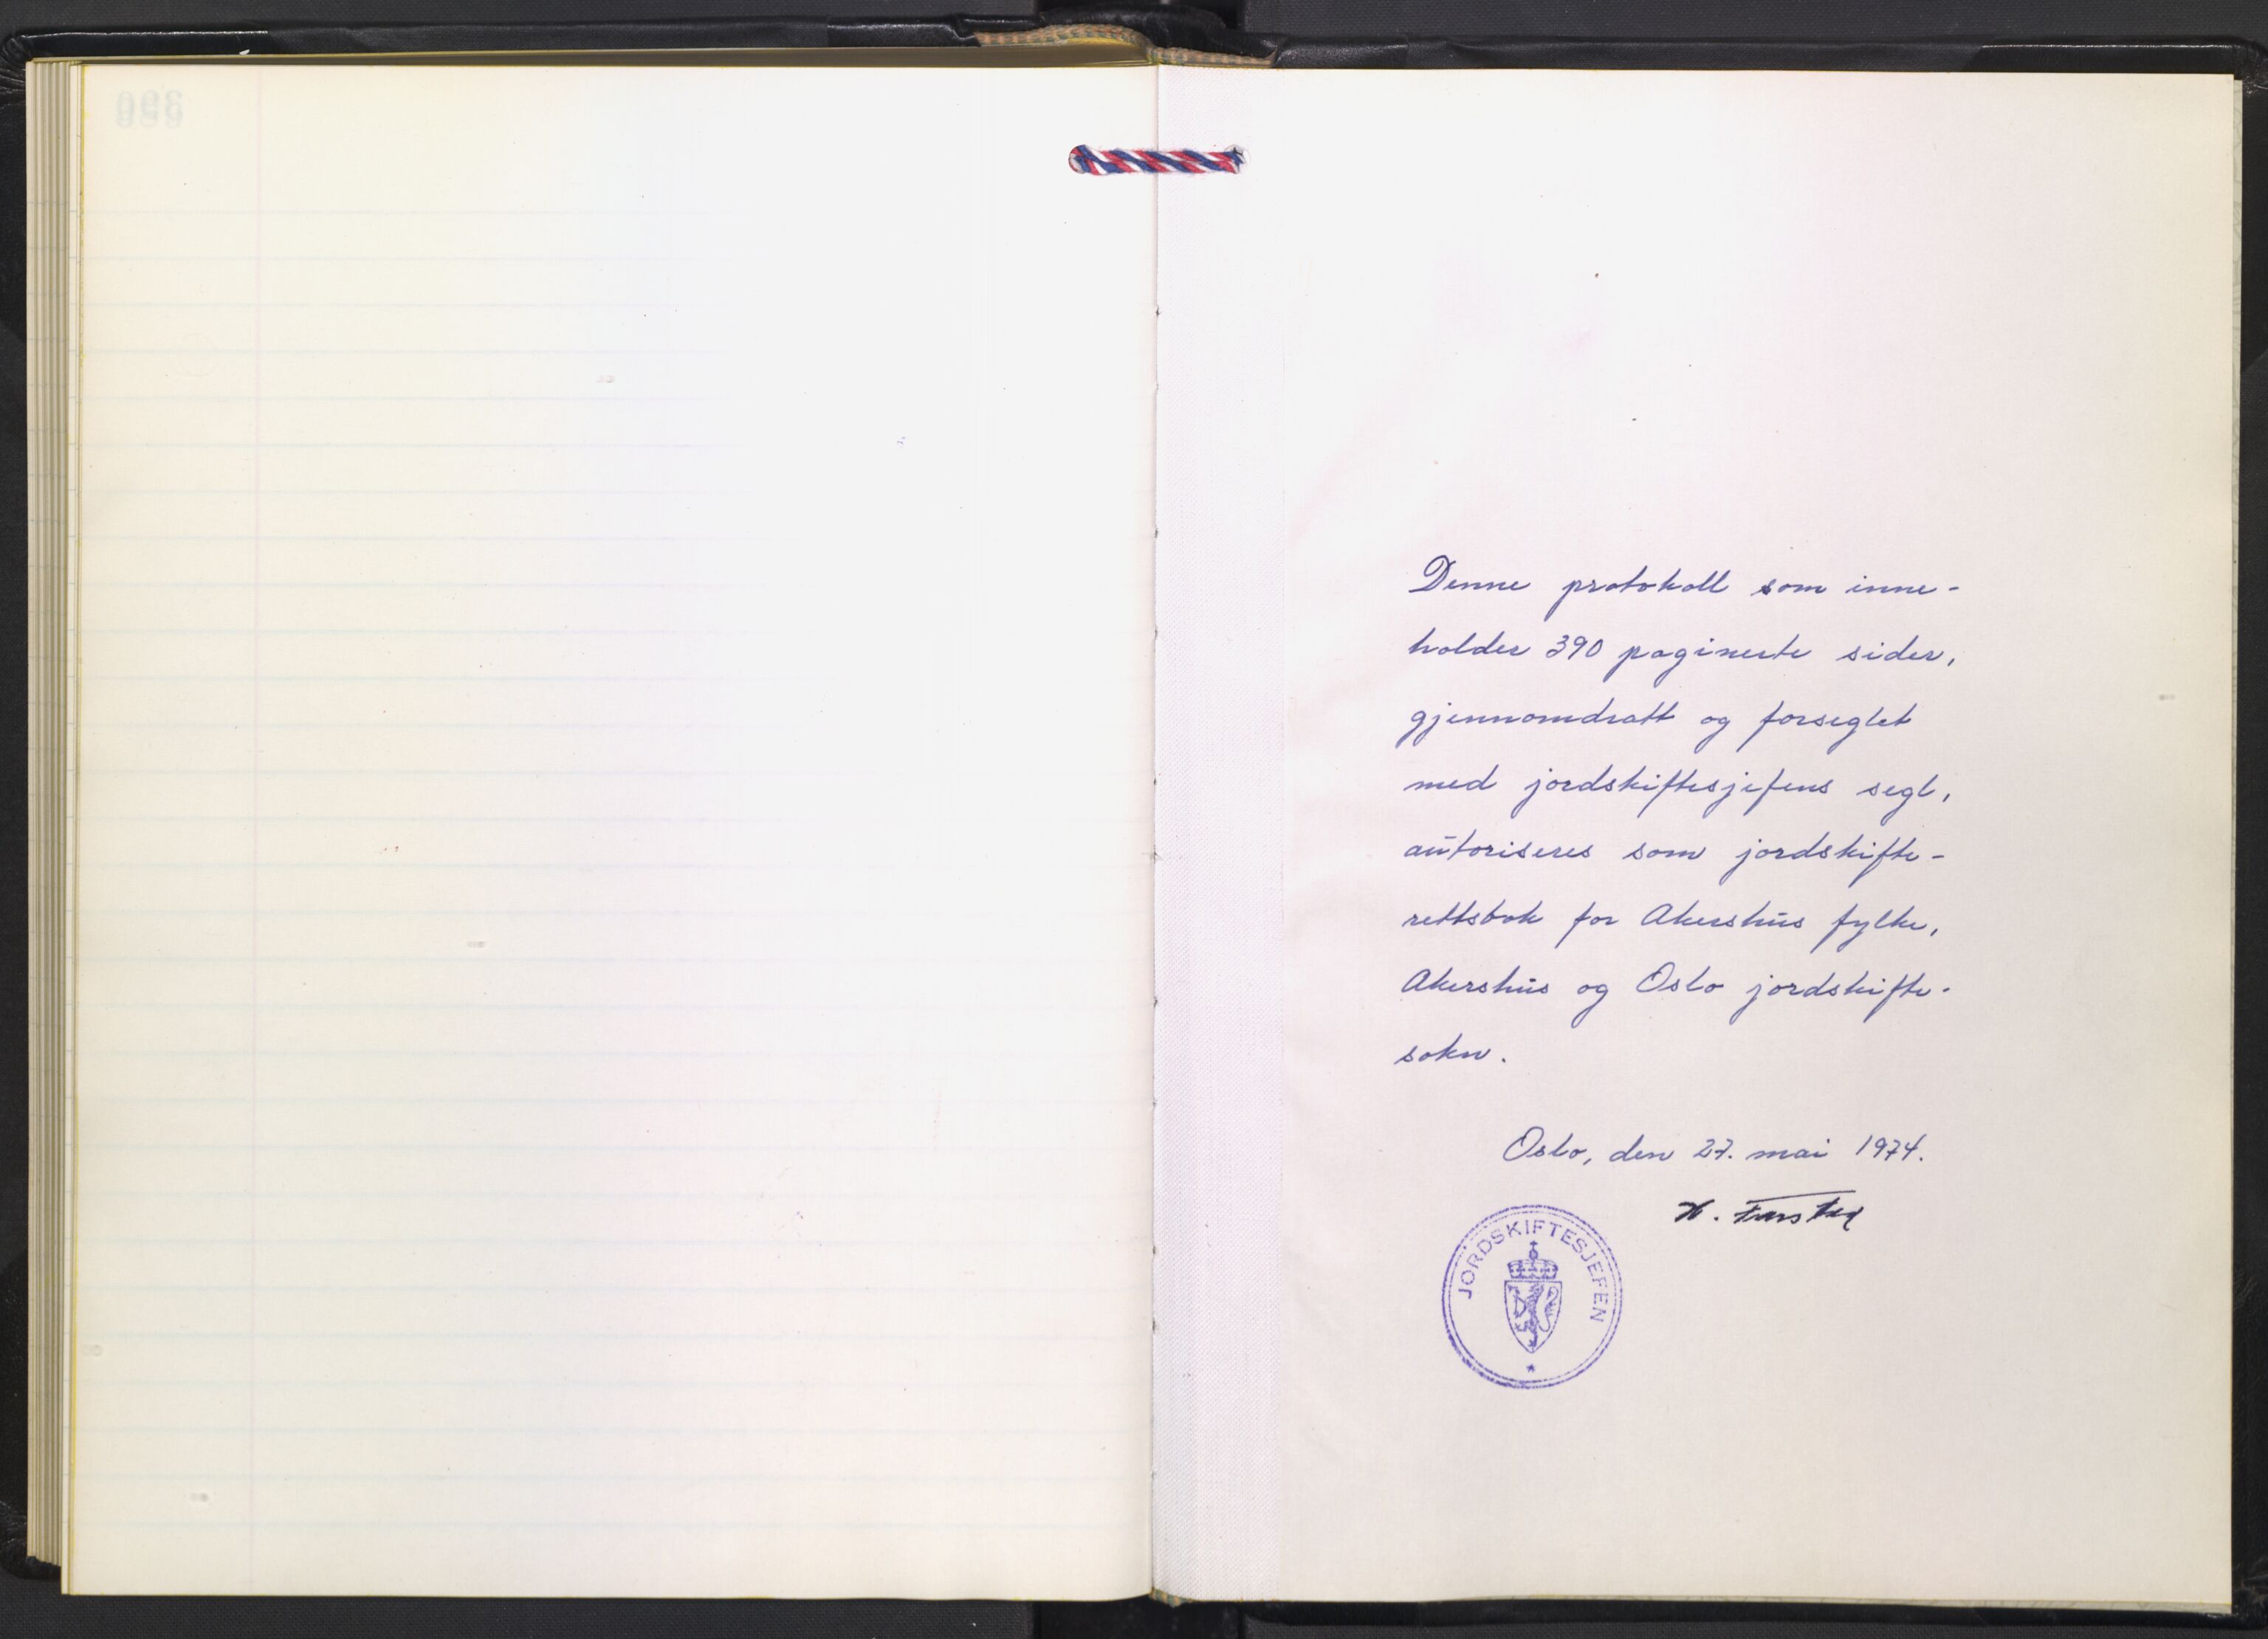 Denne protokoll som inne-
holder 390 paginerte sider,
gjennomdratt og forseglet
med jordskiftesjefens segl,
autoriseres som jordskifte-
rettsbok for Akershus fylke,
Akershus og Oslo jordskifte-
sokn.
Oslo, den 27. mai 1974.
JORDSKIFTESJEFEN